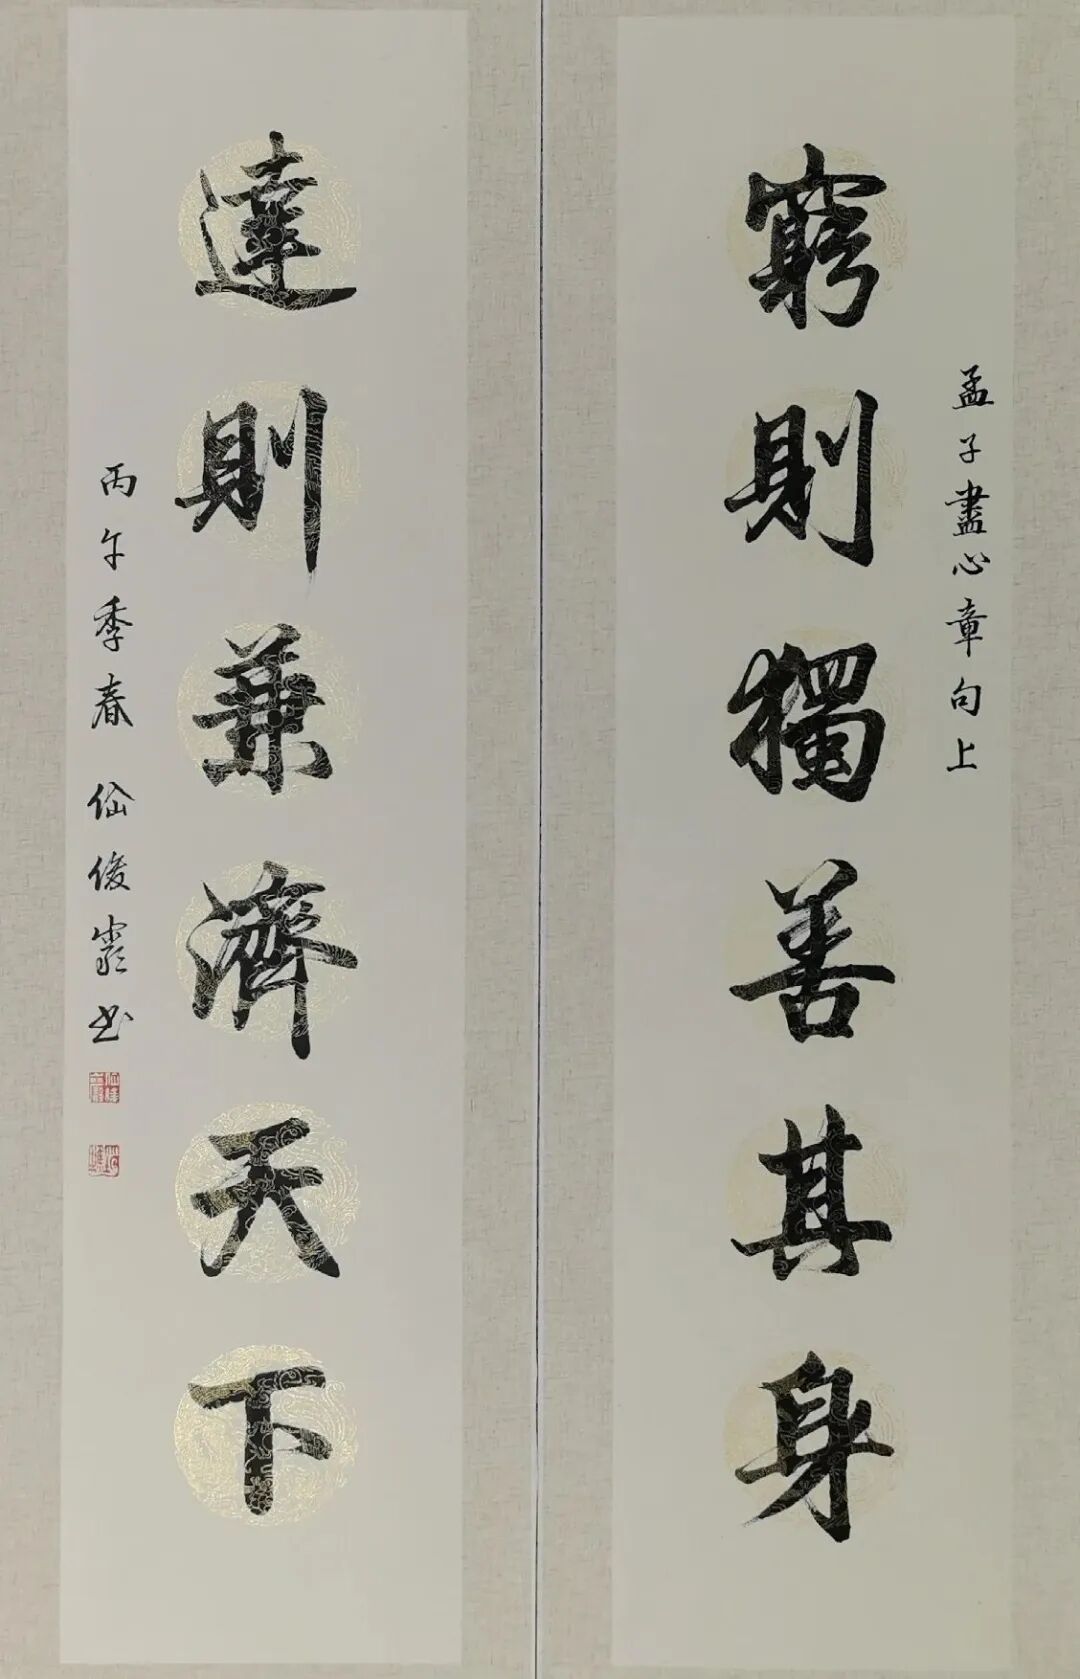 孟子盡心章句上
窮則獨善其身
達則兼濟天下
丙午季春 俊巖书